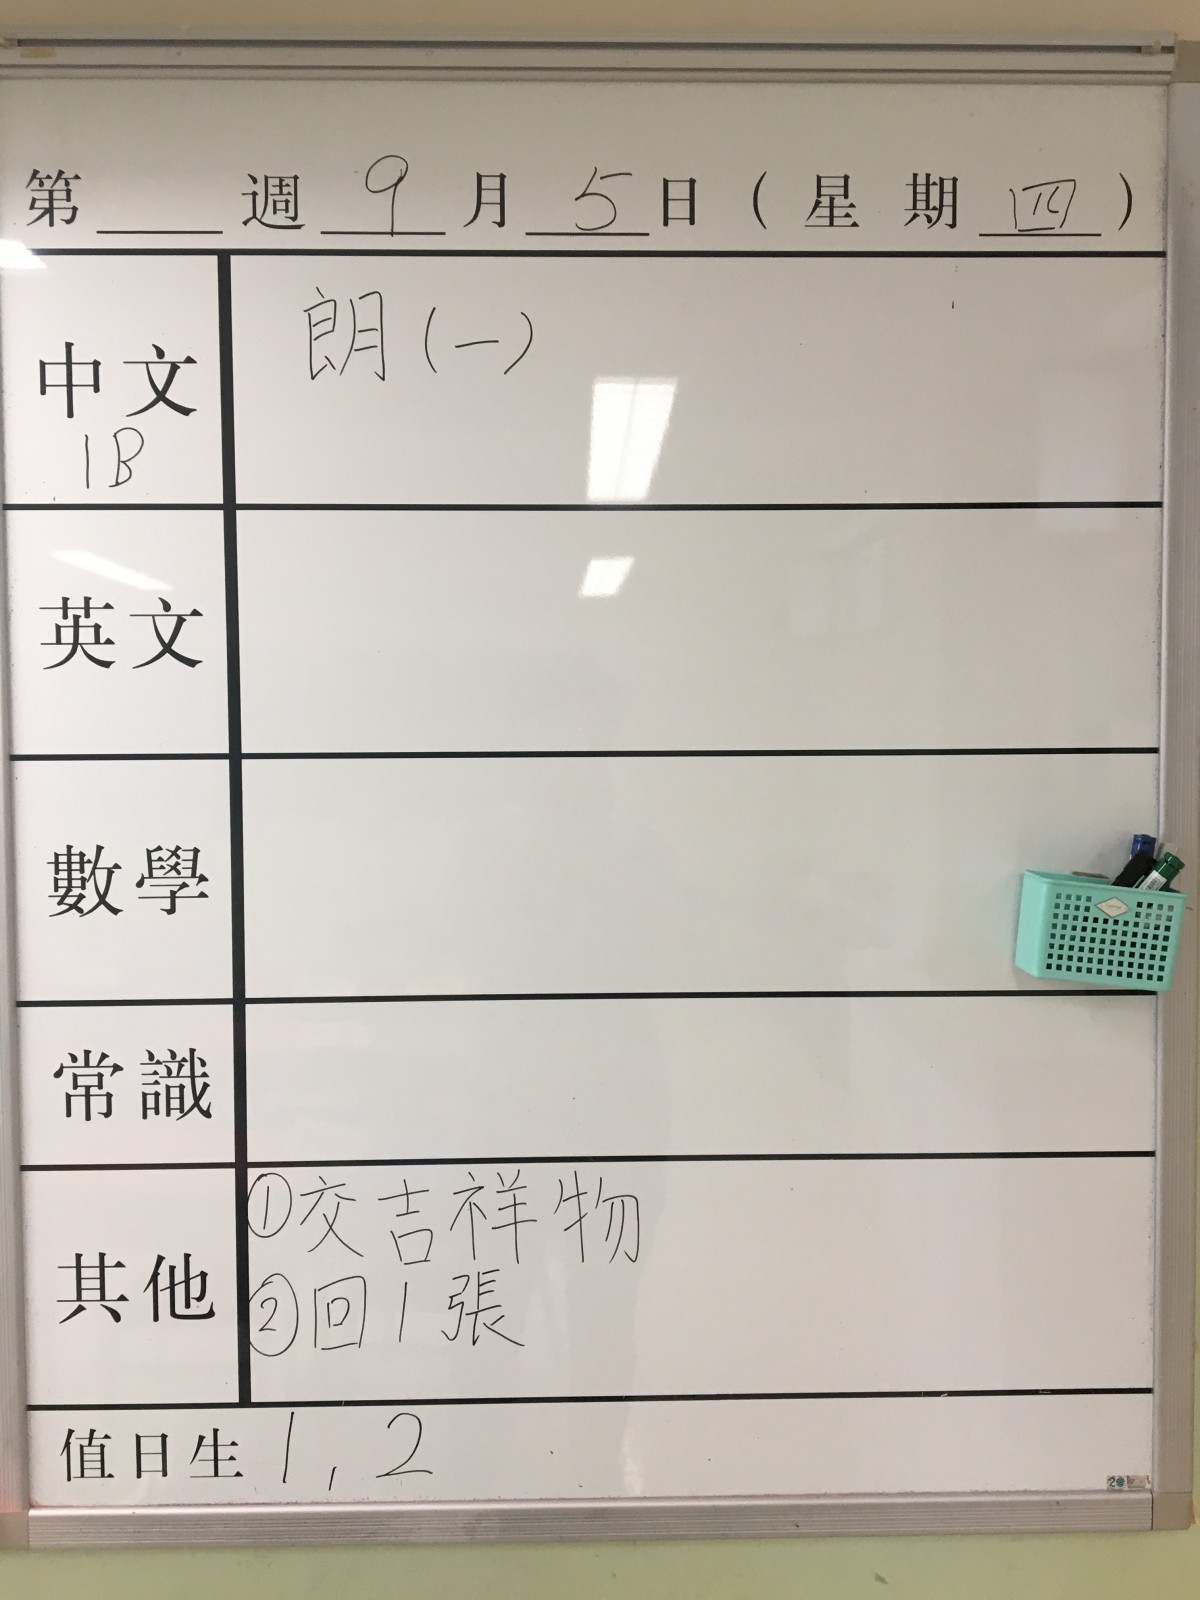 第 週 9 月 5 日 ( 星 期 四 )
中文 朗(一)
1B
英文
數學
常識
①交吉祥物
其他
②回1張
值日生 1, 2